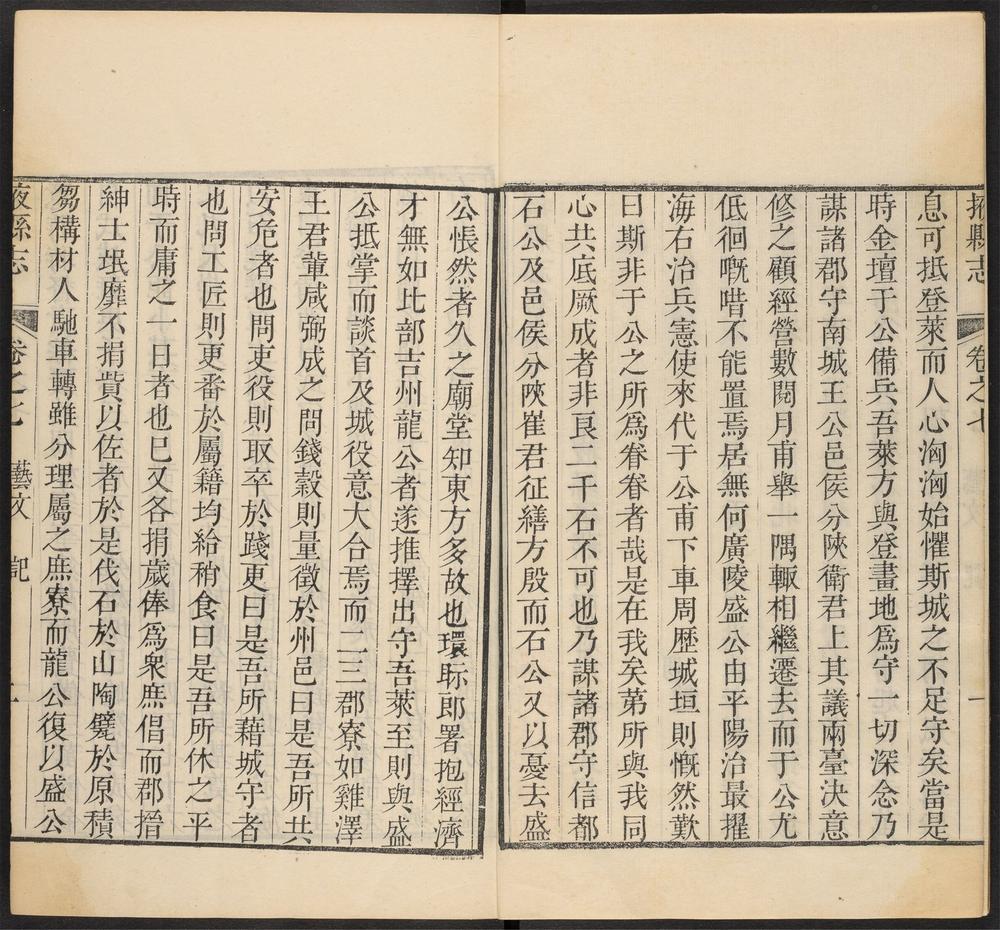 掖縣志 卷之七 一
息可抵登萊而人心洶洶始懼斯城之不足守矣當是
時金壇于公備兵吾萊方與登畫地爲守一切深念乃
謀諸郡守南城王公邑侯分陝衛君上其議兩臺決意
修之顧經營數閱月甫舉一隅輙相繼遷去而于公尤
低徊嘅唶不能置焉居無何廣陵盛公由平陽治最擢
海右治兵憲使來代于公甫下車周歷城垣則慨然歎
曰斯非于公之所爲眷眷者哉是在我矣第所與我同
心共底厥成者非良二千石不可也乃謀諸郡守信都
石公及邑侯分陝崔君征繕方殷而石公又以憂去盛
公悵然者久之廟堂知東方多故也環眎郎署抱經濟
才無如比部吉州龍公者遂推擇出守吾萊至則與盛
公抵掌而談首及城役意大合焉而二三郡寮如雞澤
王君輩咸弼成之問錢穀則量徵於州邑曰是吾所共
安危者也問吏役則取卒於踐更曰是吾所藉城守者
也問工匠則更番於屬籍均給稍食曰是吾所休之平
時而庸之一日者也巳又各捐歲俸爲衆庶倡而郡搢
紳士氓靡不捐貲以佐者於是伐石於山陶甓於原積
芻構材人馳車轉雖分理屬之庶寮而龍公復以盛公
掖縣志 卷之七 藝文 記